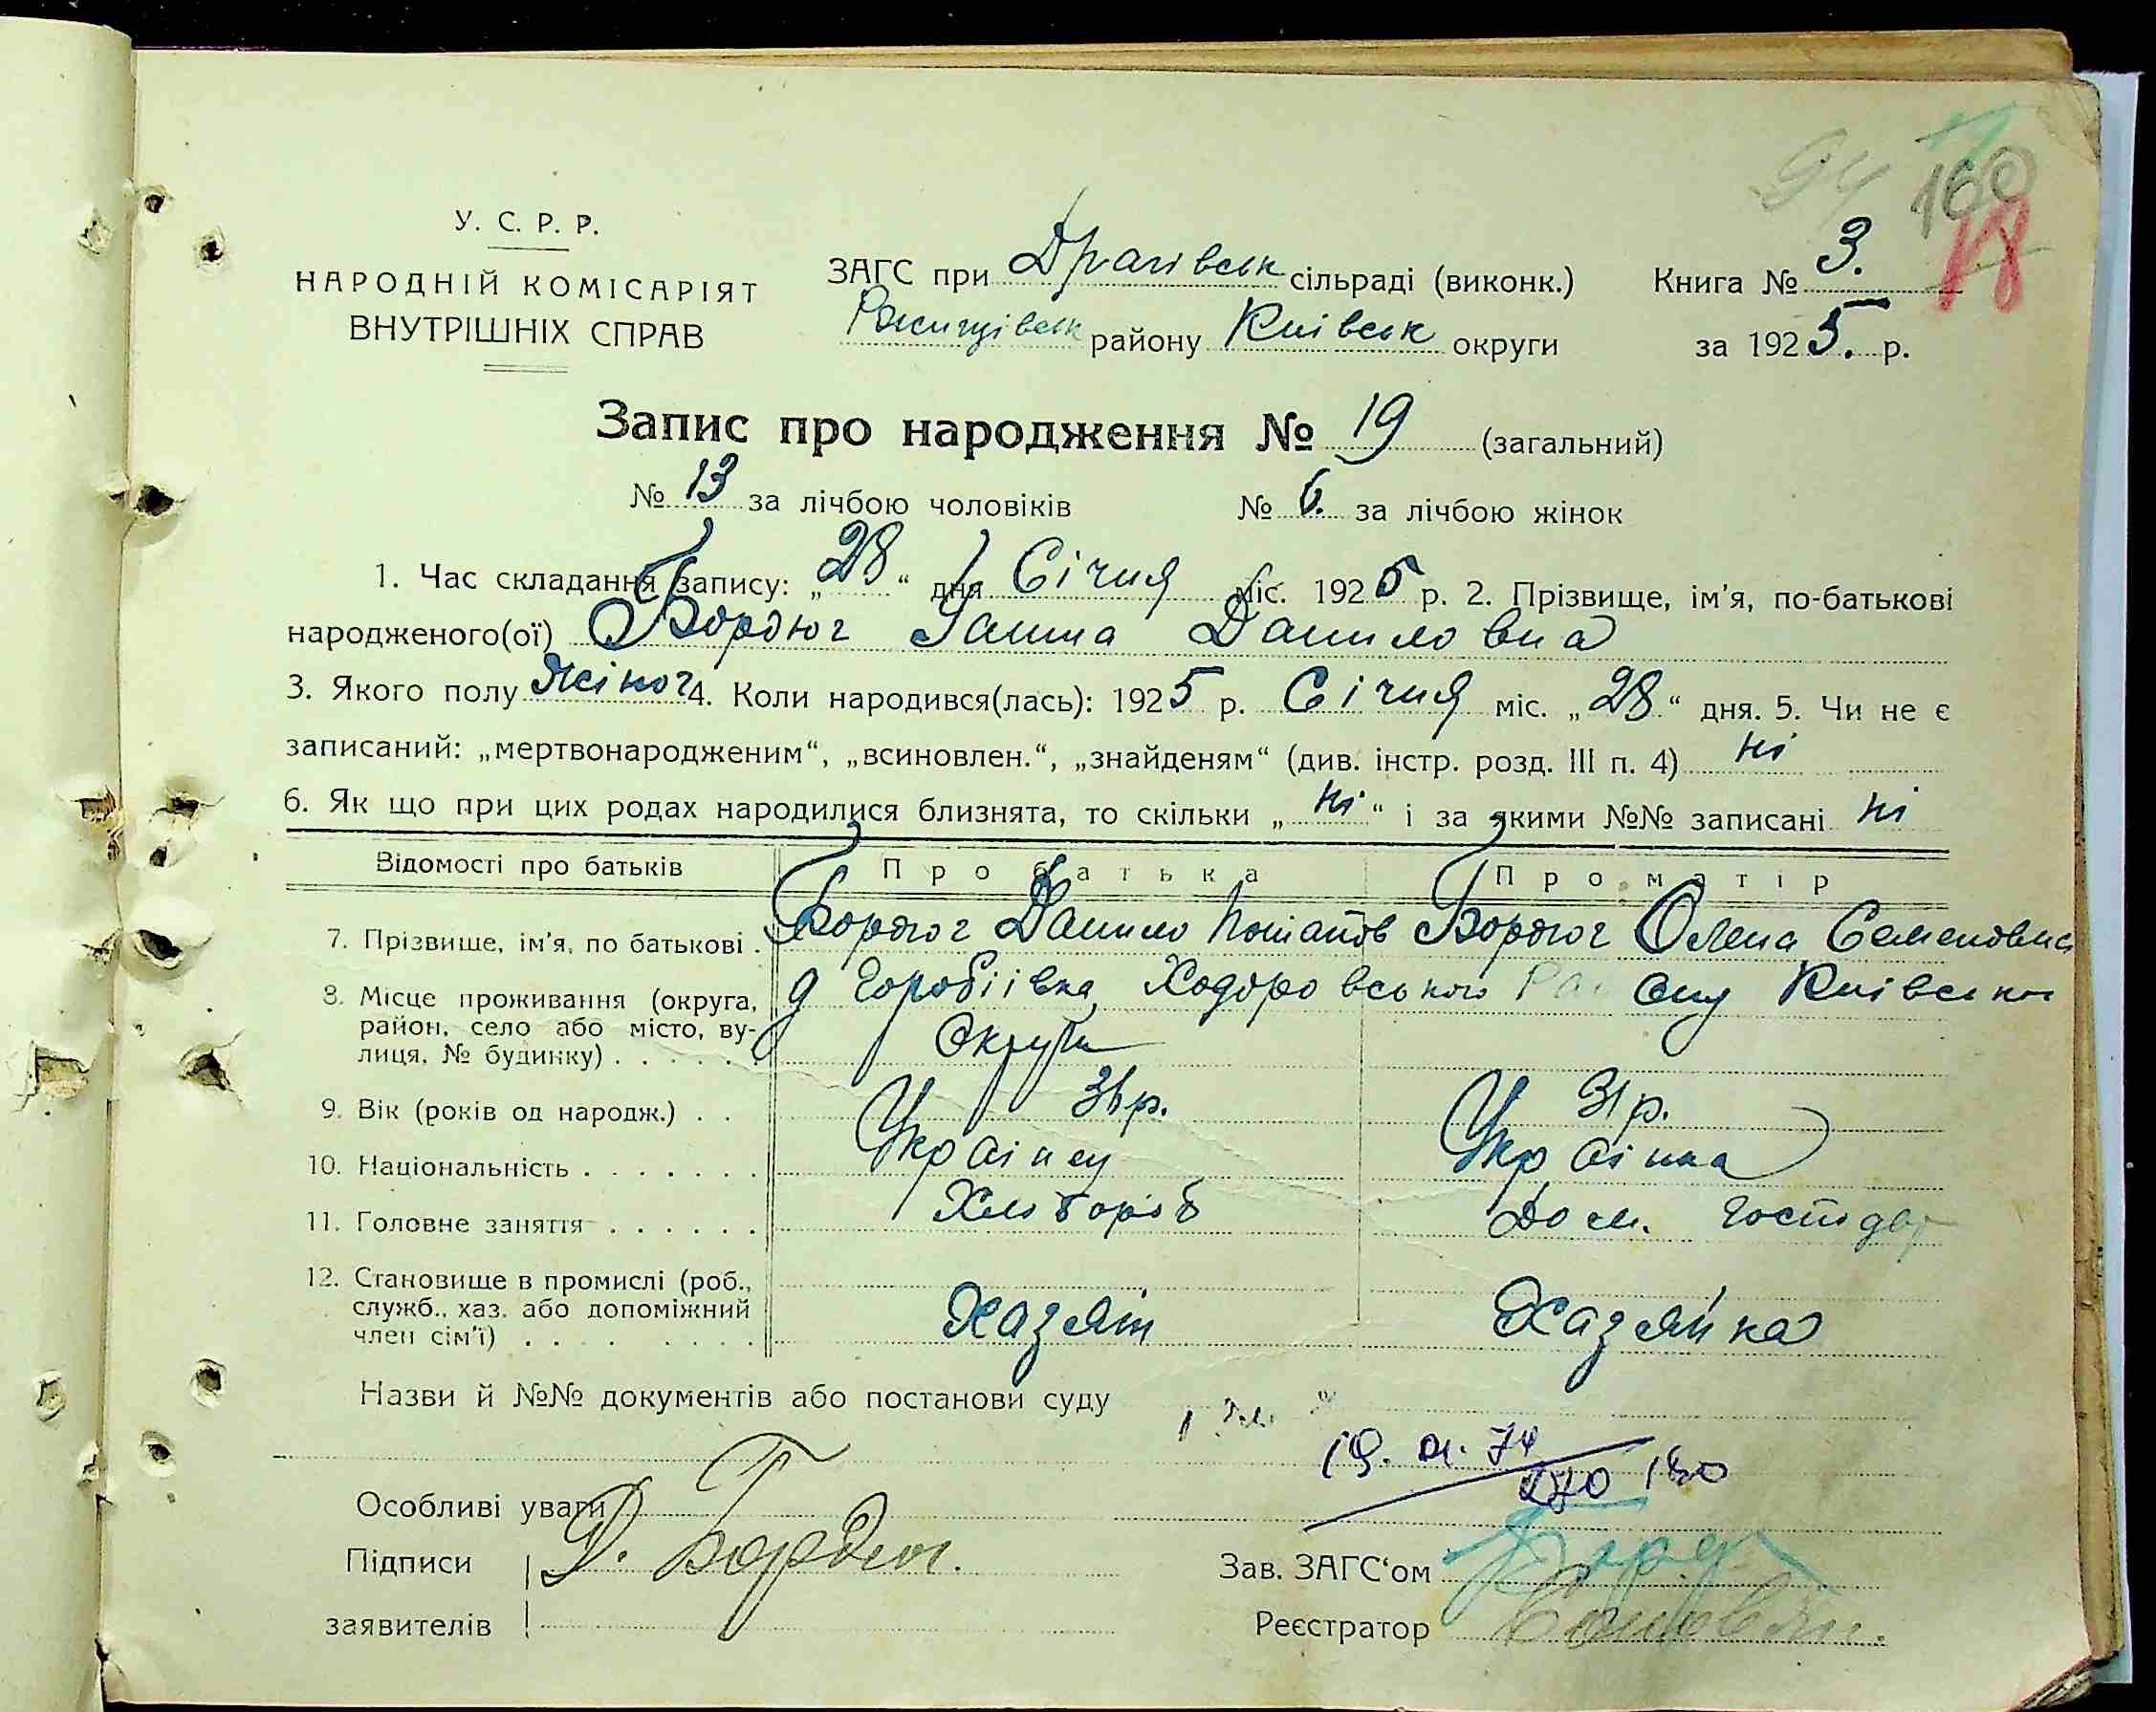 94 160
18
У. С. Р. Р.
НАРОДНІЙ КОМІСАРІЯТ
ВНУТРІШНІХ СПРАВ
ЗАГС при Драчівськ сільраді (виконк.) Книга № 3.
Ржищівськ району Київськ округи за 1925. р.
Запис про народження № 19 (загальний)
№ 13 за лічбою чоловіків № 6. за лічбою жінок
1. Час складання запису: „28“ дня Січня міс. 1925 р. 2. Прізвище, ім'я, по-батькові
народженого(ої) Бордюг Ганна Даниловна
3. Якого полу жіноч 4. Коли народився(лась): 1925 р. Січня міс. „28“ дня. 5. Чи не є
записаний: „мертвонародженим“, „всиновлен.“, „знайденям“ (див. інстр. розд. III п. 4) ні
6. Як що при цих родах народилися близнята, то скільки „ні“ і за якими №№ записані ні
Відомості про батьків Про батька Про матір
7. Прізвише, ім'я, по батькові . Бордюг Данило Потапов Бордюг Олена Семеновна
8. Місце проживання (округа, район, село або місто, вулиця, № будинку) . . . . . д Горобіівка Ходоровського Київськи
Округи
9. Вік (років од народж.) . . р. 31 р.
10. Національність . . . . . . . Украінец Украінка
11. Головне заняття . . . . . . Хлібороб Дом. господар
12. Становище в промислі (роб., служб., хаз. або допоміжний член сім'ї) . . . . . . . Хазяін Хазяйка
Назви й №№ документів або постанови суду
19. 74
Особливі уваги
Підписи Д. Бордюг. Зав. ЗАГС'ом
заявителів Реєстратор